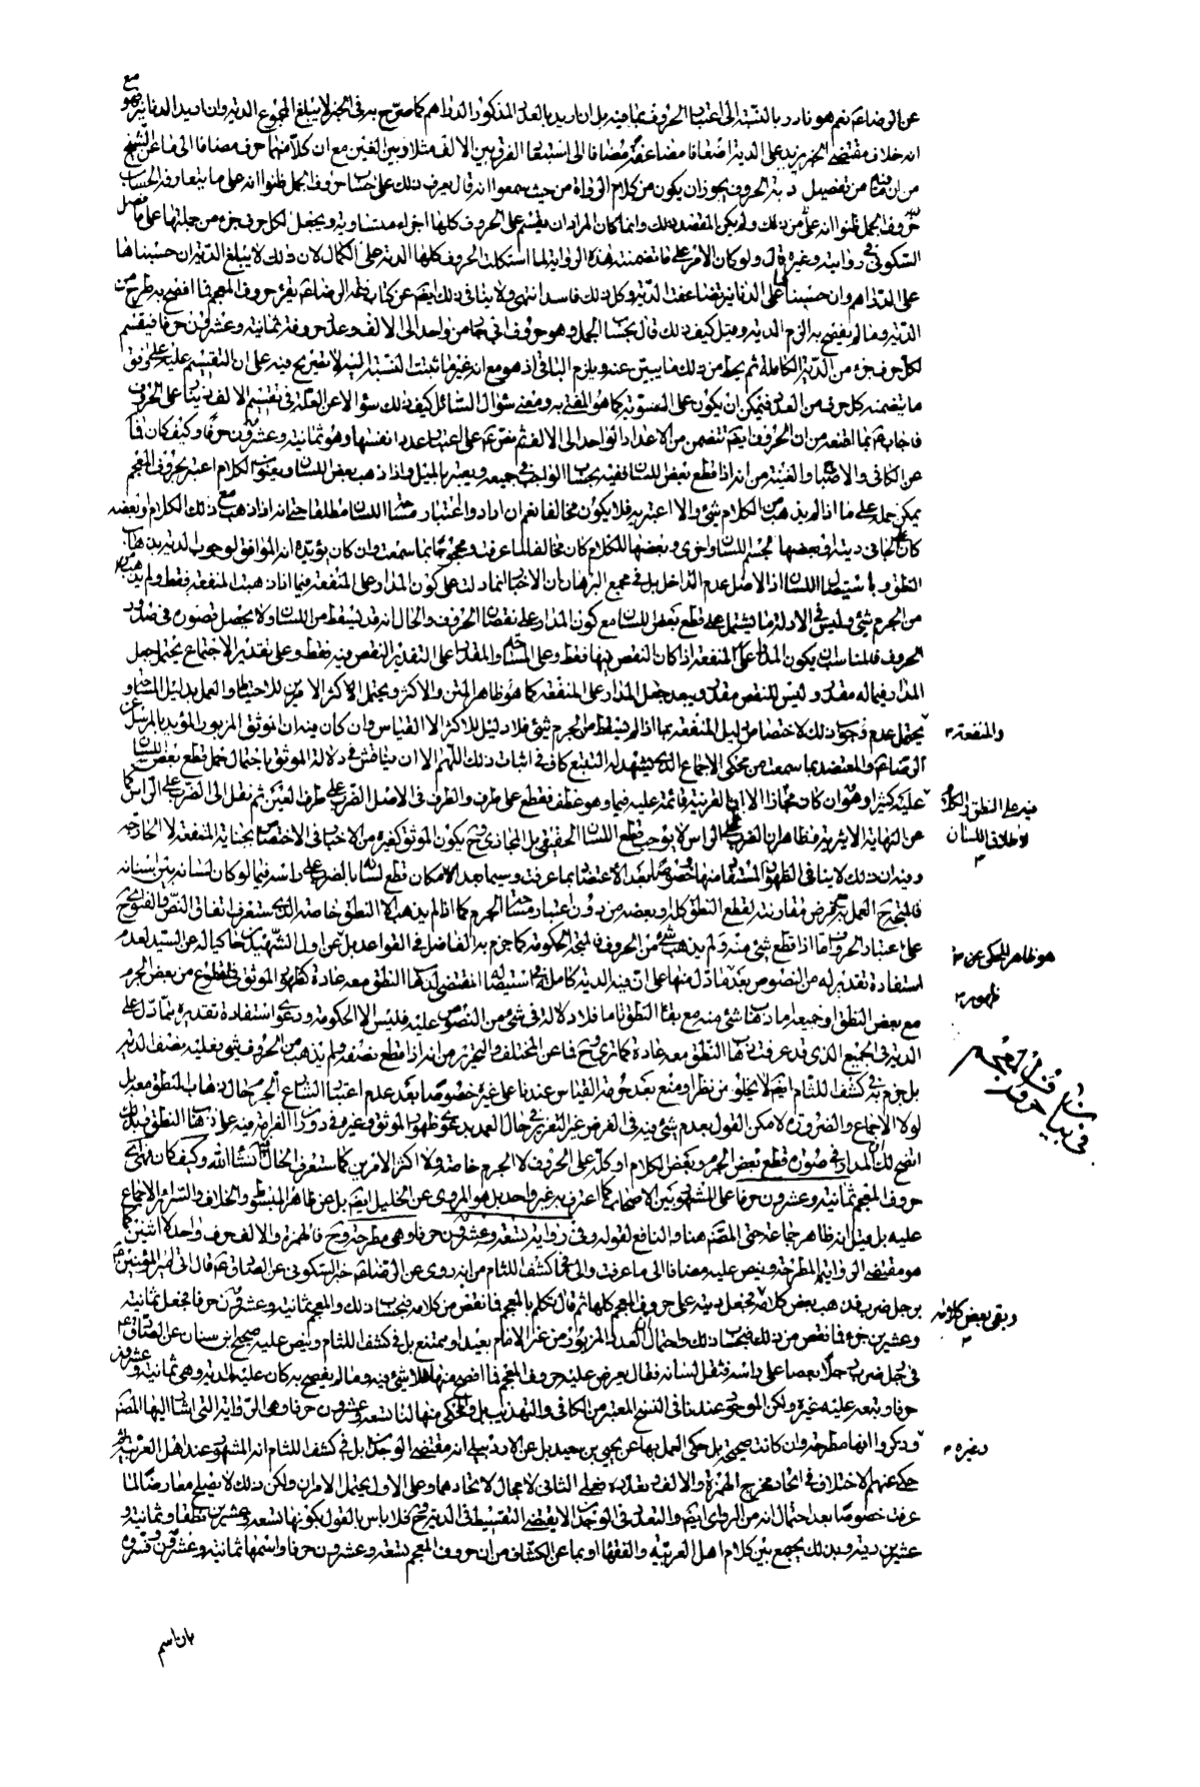 عن الرضا ع نعم هو نادر بالنسبة الى اعتبار الحروف بما فيه بل ان اريد بالعدد المذكور الدراهم كما صرح به في الخبر لا يبلغ المجموع الدية وان اريد الدنانير فهو مع
انه خلاف مقتضى الخبر يزيد على الدية اضعافا مضاعفة مضافا الى استبعاد الفرق بين الالف مثلا وبين الغين مع ان كلا منهما حرف مضافا الى ما عن الشيخ
من ان ما فيه من تفصيل دية الحروف يجوز ان يكون من كلام الرواة من حيث سمعوا انه قال يعرف ذلك على حساب حروف الجمل ظنوا انه على ما يتعارفه الحساب
حروف الجمل ظنوا انه على من ذلك ولم يكن المقصد ذلك وانما كان المراد ان يقسم على الحروف كلها اجزاء متساوية ويجعل لكل حرف جزء من جملتها على ما فصل
السكوني في روايته وغيره قال ولو كان الامر على ما تضمنته هذه الرواية لما استكملت الحروف كلها الدية على الكمال لان ذلك لا يبلغ الدية ان حسبناها
على الدراهم وان حسبناها على الدنانير تضاعفت الدية وكل ذلك فاسد انتهى ولا ينافي ذلك ايضا عن كتاب الرضا ع يقرء حروف المعجم فما افصح به طرح من
الدية وما لم يفصح به الزم الدية وقيل كيف ذلك قال بحساب الجمل وهو حروف ابي جاد من واحد الى الالف وعدد حروفه ثمانية وعشرون حرفا فيقسم
لكل حرف جزء من الدية الكاملة ثم يحط من ذلك ما يبين عنه ويلزم الباقي اذ هو مع انه غير ثابت النسبة اليه لا تصريح فيه على ان التقسيم عليه على وفق
ما يتضمنه كل حرف من العدد فيمكن ان يكون على التسوية كما هو المفتى به ومعنى سؤال السائل كيف ذلك سؤالا عن العلة في تقسيم الالف دينار على الحروف
فاجابه ع بما المقنعه من ان الحروف ايضا تتضمن من الاعداد الواحد الى الالف ثم نص ع على اعتبار عدد انفسها وهو ثمانية وعشرون حرفا وكيف كان فما
عن الكافي والاصباح والغنية من انه اذا قطع بعض اللسان ففيه بحساب الواجب في جميعه ويعتبر بالميل واذا ذهب بعض اللسان وبعض الكلام اعتبر بحروف المعجم
يمكن حمله على ما اذا لم يذهب من الكلام شيء والا اعتبر به فلا يكون مخالفا نعم ان ارادوا اعتبار مساحة اللسان مطلقا حتى انه اذا ذهب مع ذلك الكلام او بعضه
كان على الجاني دية او بعضها لجرم اللسان واخرى او بعضها للكلام كان مخالفا لما عرفت ومحجوجا بما سمعت وان كان يؤيده انه الموافق لوجوب الدية بذهاب
النطق وباستيصال اللسان اذ الاصل عدم التداخل بل في مجمع البرهان ان الاخبار انما دلت على كون المدار على المنفعة فيما اذا ذهبت المنفعة فقط ولم يذهب
من الجرم شيء وليس في الادلة ما يشتمل على قطع بعض اللسان مع كون المدار على نقصان الحروف والحال انه قد يسقط من اللسان ولا يحصل قصوره في صدور
الحروف فالمناسب ان يكون المدار على المنفعة اذا كان النقص فيها فقط وعلى المساحة والمقدار على التقدير النقص فيه فقط وعلى تقدير الاجتماع يحتمل جعل
المدار فيما له مقدر وليس للنقص مقدر ويبعد جعل المدار على المنفعة كما هو ظاهر المتن والاكثر ويحتمل الاكثر الامرين للاحتياط والعمل بدليل المساحة و
يحتمل عدم وجوب ذلك لاختصاص دليل المنفعة بما اذا لم يسقط من الجرم شيء فلا دليل للاكثر الا القياس وان كان فيه ان الموثق المزبور المؤيد بالمرسل عن
الرضا ع والمعتضد بما سمعت من محكي الاجماع الذي يشهد له التتبع كاف في اثبات ذلك اللهم الا ان يناقش في دلالة الموثق باحتمال حمل قطع بعض اللسان
عليه كثيرا وهو وان كان مجازا الا ان القرينة قائمة عليه فيما وهو عطف فقطع على طرف والطرف في الاصل الضرب على طرف العين ثم نقل الى الضرب على الراس كما
عن النهاية الاثيرية وظاهر ان الضرب على الراس لا يوجب قطع اللسان الحقيقي بل المجازي وح يكون الموثق كغيره من الاخبار في الاختصاص بجناية المنفعة لا اتحاد حقه
وفيه ان ذلك لا ينافي الظهور المستفاد منها خصوصا بعد الاعتضاد بما عرفت وسيما بعد الامكان قطع لسانه بالضرب على راسه فيما لو كان لسانه بين اسنانه
علي اعتبار الحروف واما اذا قطع شيء منه ولم يذهب شيء من الحروف فالمتجه الحكومة كما جزم به الفاضل في القواعد بل عن اول الشهيدين حاكيا له عن السيد لعدم
استفادة تقدير له من النصوص بعد ما دل منها على ان فيه الدية كاملة في استيصاله المقتضي لذهاب النطق معه عادة كظهور الموثق في قطع من بعض الجرم
مع بعض النطق او جميعه اما ذهاب شيء منه مع بقاء النطق تاما فلا دلالة في شيء من النصوص عليه فليس الا الحكومة ودعوى استفادة تقديره مما دل على
الدية في الجميع الذي قد عرفت ذهاب النطق معه عادة كما ترى وح فما عن المختلف والتحرير من انه اذا قطع نصفه ولم يذهب من الحروف شيء فعليه نصف الدية
بل جزم به في كشف اللثام ايضا لا يخلو من نظر او منع بعد حرمة القياس عندنا على غيره خصوصا بعد عدم اعتبار اتساع الجرم حال ذهاب النطق معه بل
لولا الاجماع والضرورة لامكن القول بعدم شيء فيه في الفرض غير التعزير في حال العمد بدعوى ظهور الموثق وغيره في دوران الغرامة فيه على ذهاب النطق وبذلك
اتضح لك ان المدار في صورة قطع بعض الجرم وبعض الكلام او كله على الحروف لا الجرم خاصة ولا اكثر الامرين كما ستعرف الحال فيه انشاء الله وكيف كان فهي اي
حروف المعجم ثمانية وعشرون حرفا على المشهور بين الاصحاب كما اعترف به غير واحد بل هو المروي عن الخليل ايضا بل عن ظاهر المبسوط والخلاف والسرائر الاجماع
عليه بل قيل انه ظاهر جماعة حتى المصنف هنا والنافع لقوله وفي رواية تسعة وعشرون حرفا وهي مطرحة وح فالهمزة والالف حرف واحد لا اثنين كما
هو مقتضى الرواية المطرحة وينص عليه مضافا الى ما عرفت والى ما في كشف اللثام من انه روى عن الرضا ع خبر السكوني عن الصادق ع قال اتى امير المؤمنين ع
برجل ضرب فذهب بعض كلامه فجعل ديته على حروف المعجم كلها ثم قال تكلم بالمعجم فما نقص من كلامه فبحساب ذلك والمعجم ثمانية وعشرون حرفا فجعل ثمانية
وعشرين جزء فما نقص من ذلك فبحساب ذلك واحتمال ان العدد المزبور من غير الامام بعيد او ممتنع بل في كشف اللثام وينص عليه صحيح ابن سنان عن الصادق ع
في رجل ضرب رجلا بعصا على راسه فثقل لسانه فقال يعرض عليه حروف المعجم فما افصح منها فلا شيء فيه وما لم يفصح به كان عليه الدية وهي ثمانية وعشرون
حرفا وتبعه عليه غيره ولكن الموجود عندنا في النسخ المعتبر من الكافي والتهذيب بل والمحكي منها لنا تسعة وعشرون حرفا وهي الرواية التي اشار اليها المصنف
وذكروا انها مطرحة وان كانت صحيحة بل حكي العمل بها عن يحيى بن سعيد بل عن الاردبيلي انه مقتضى الوجدان بل في كشف اللثام انه المشهور عند اهل العربية بل
حكى عنهم الاختلاف في اتحاد مخرج الهمزة والالف وتعدده فعلى الثاني لا مجال لاتحادهما وعلى الاول يحتمل الامران ولكن ذلك لا يصلح معارضا لما
عرفت خصوصا بعد احتمال انه من الراوي ايضا والتعدد في الوجدان لا يقتضي التقسيط في الدية وح فلا باس بالقول بكونها تسعة وعشرين نطقا وثمانية و
عشرين دية وبذلك يجمع بين كلام اهل العربية والفقهاء او بما عن الكشاف من ان حروف المعجم تسعة وعشرون حرفا واسمها ثمانية وعشرون وفسره
بان اسم
والمنفعة
فيه على النطق والكلام
لاطلاق اللسان
هو ظاهر المحكي عن
ظهور
في بيان حروف المعجم
وبقى بعض كلامه
وغيره